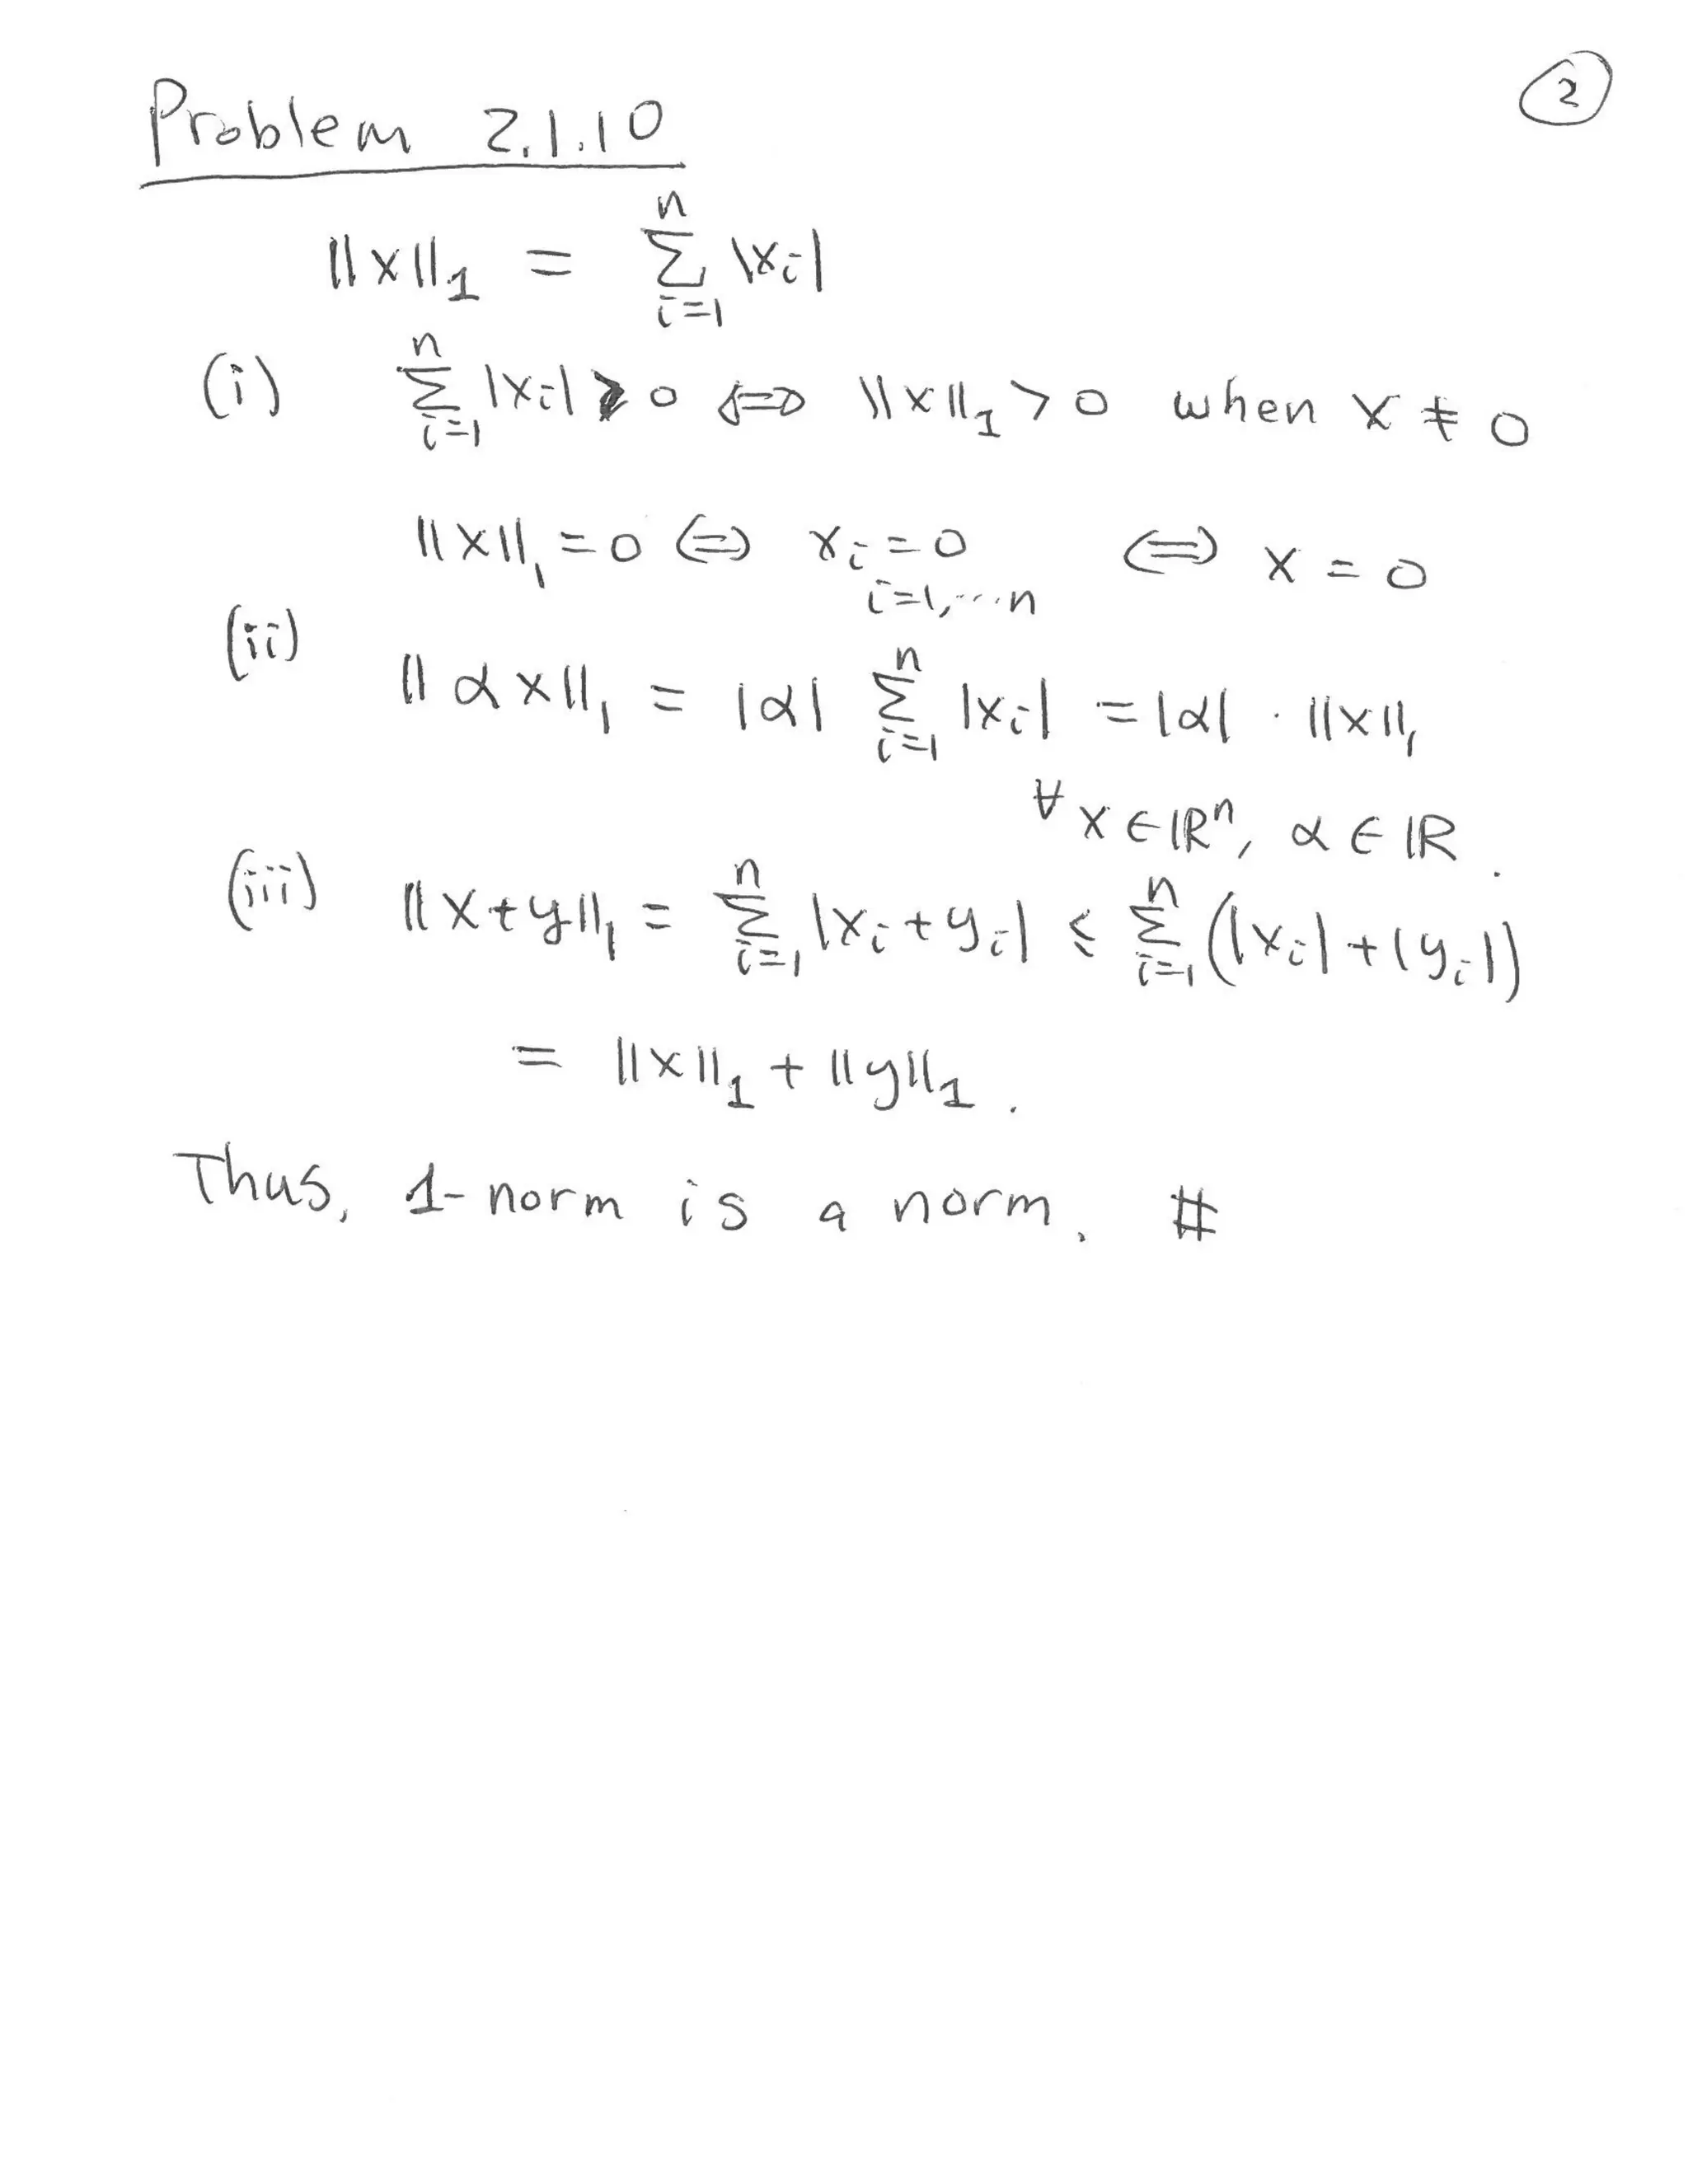 ②
Problem 2.1.10
||x||₁ = Σⁿᵢ₌₁ |xᵢ|
(i) Σⁿᵢ₌₁ |xᵢ| > 0 ⇔ ||x||₁ > 0 when x ≠ 0
||x||₁ = 0 ⇔ xᵢ = 0 ⇔ x = 0
i=1,...n
(ii)
||αx||₁ = |α| Σⁿᵢ₌₁ |xᵢ| = |α| · ||x||₁
∀ x ∈ ℝⁿ, α ∈ ℝ.
(iii) ||x+y||₁ = Σⁿᵢ₌₁ |xᵢ+yᵢ| ≤ Σⁿᵢ₌₁ (|xᵢ|+|yᵢ|)
= ||x||₁ + ||y||₁.
Thus, 1-norm is a norm. #